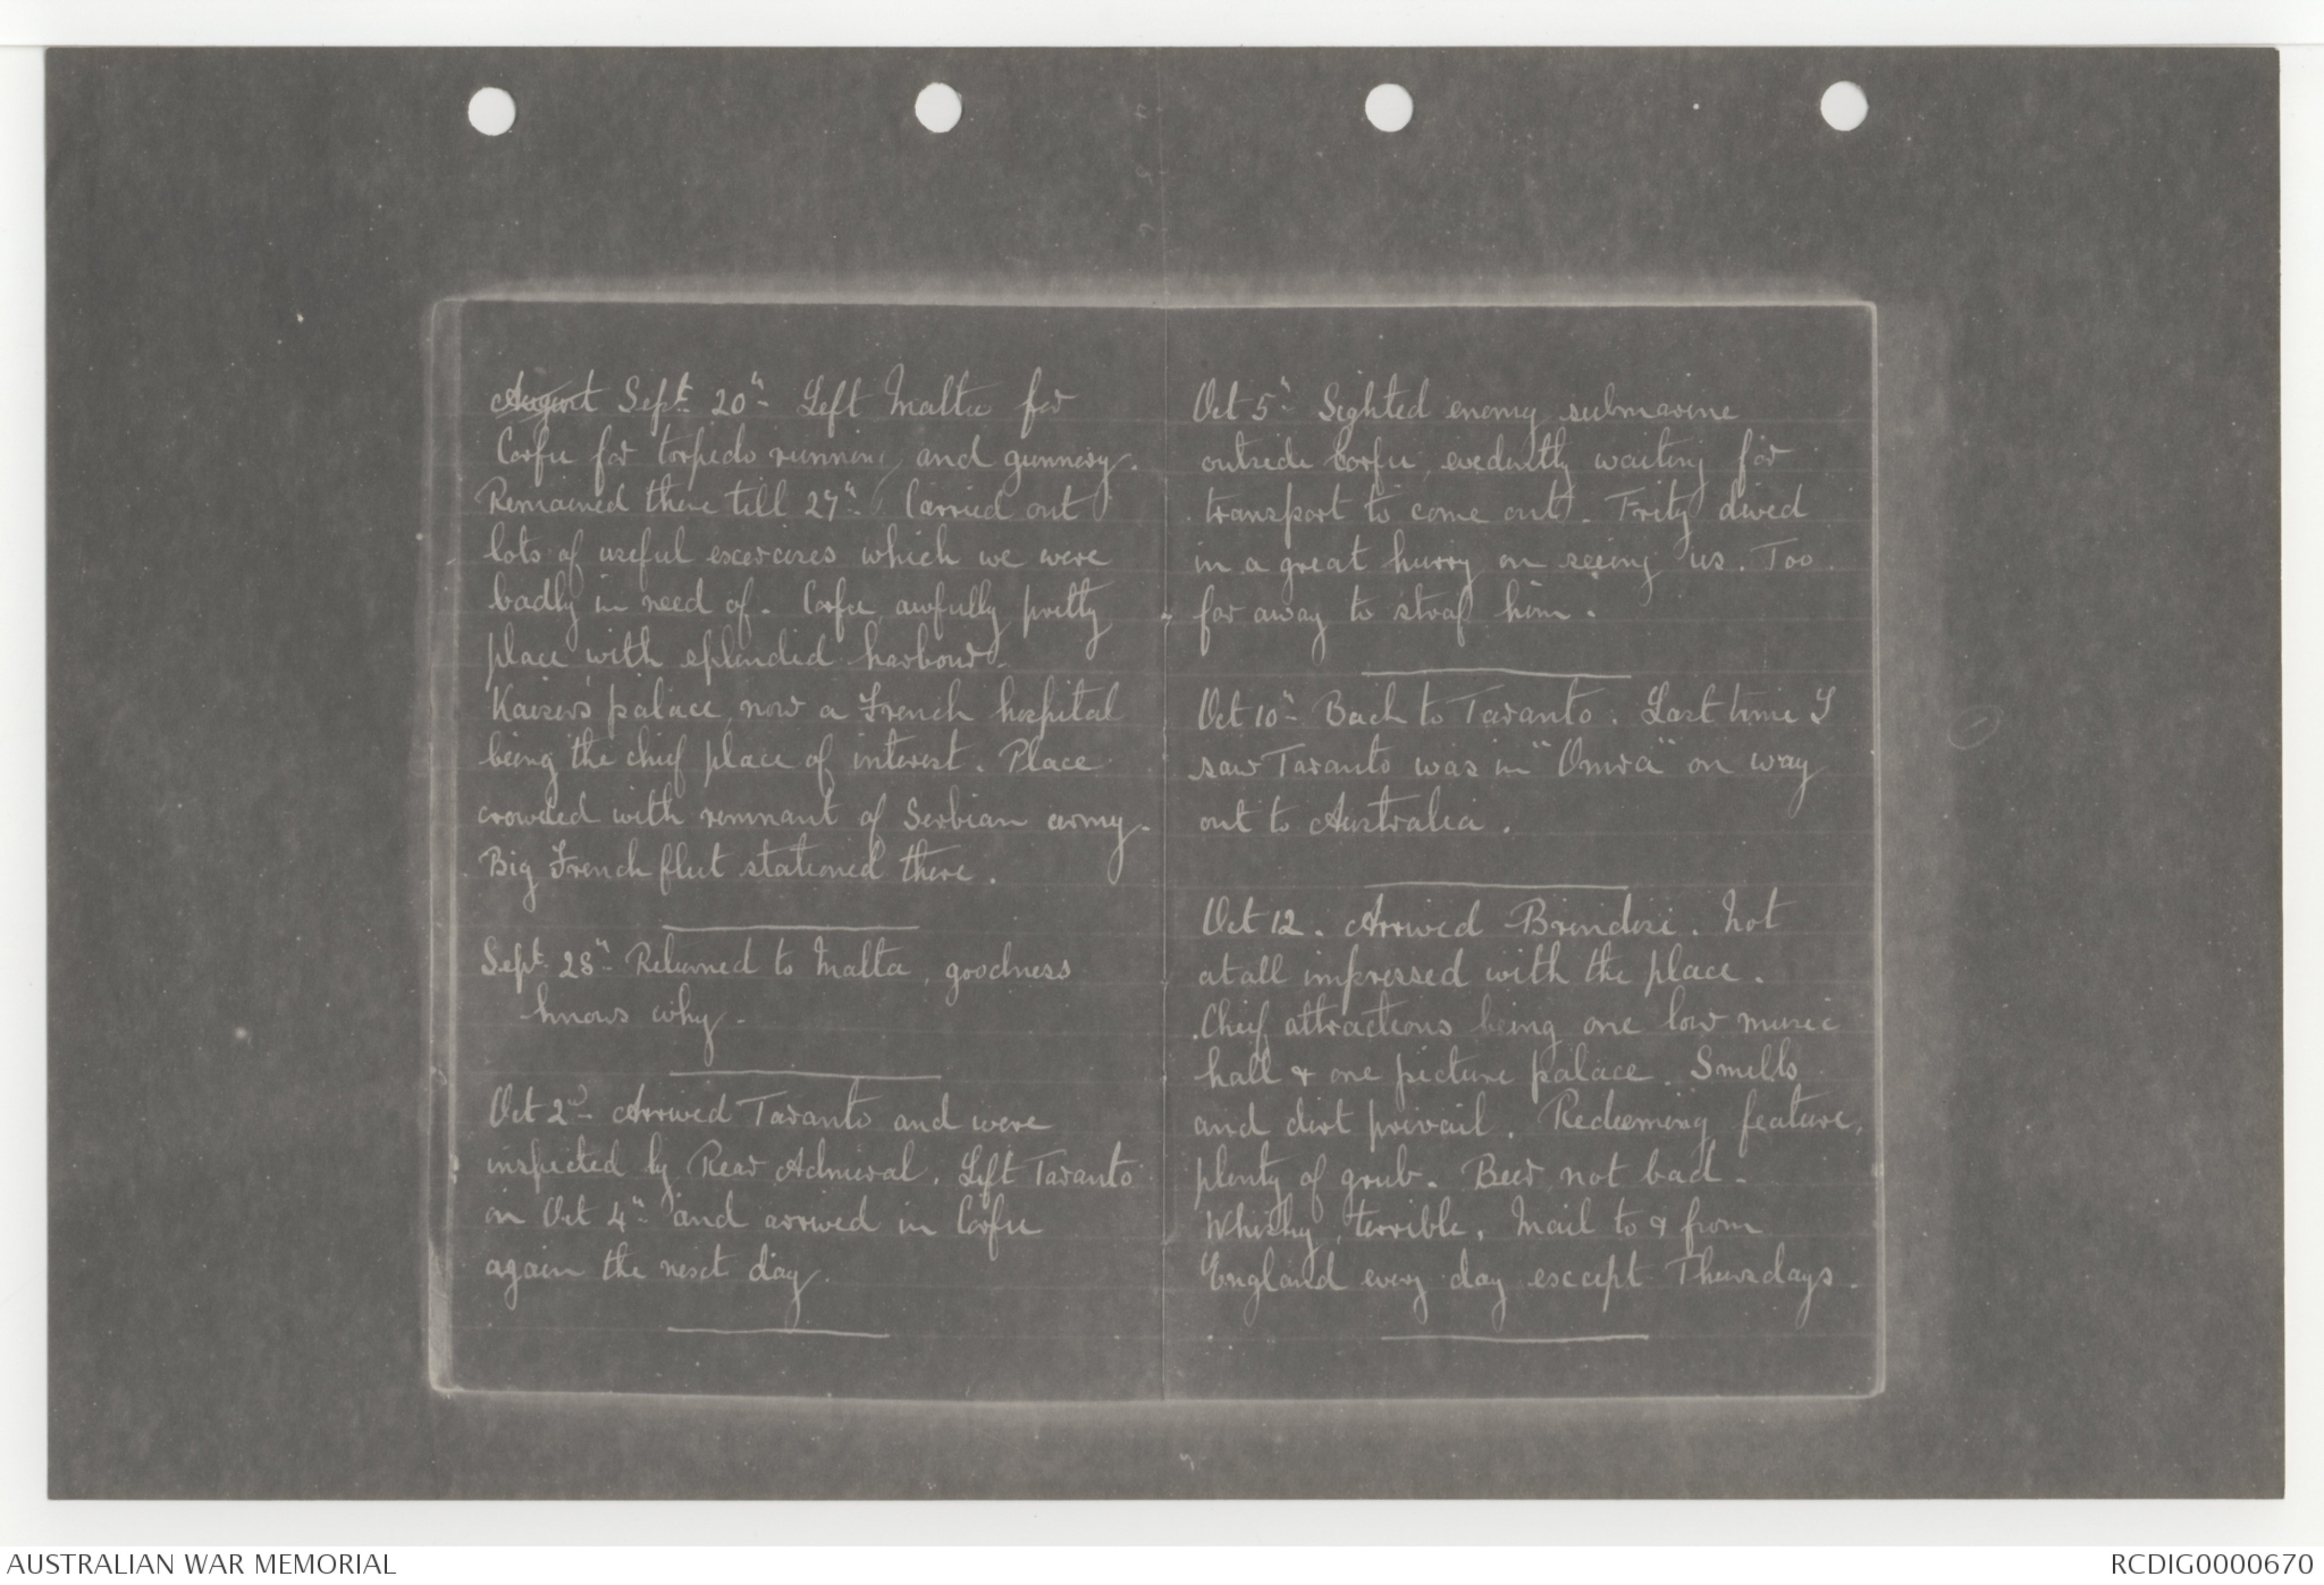 August Sept. 20th Left Malta for
Corfu for torpedo running and gunnery.
Remained there till 27th. Carried out
lots of useful excercises which we were
badly in need of. Corfu, awfully pretty
place with splendid harbour.
Kaisers palace, now a French hospital
being the chief place of interest. Place
crowded with remnant of Serbian army.
Big French fleet stationed there.
Sept. 28th Returned to Malta, goodness
knows why.
Oct 2nd Arrived Taranto and were
inspected by Rear Admiral. Left Taranto
on Oct 4th and arrived in Corfu
again the next day.
Oct 5th Sighted enemy submarine
outside Corfu, evedently waiting for
transport to come out. Fritz dived
in a great hurry on seeing us. Too
far away to straf him.
Oct 10th Back to Taranto. Last time I
saw Taranto was in "Omra" on way
out to Australia.
Oct 12. Arrived Brindisi. Not
at all impressed with the place.
Chief attractions being one low music
hall & one picture palace. Smells
and dirt prevail. Redeeming feature,
plenty of grub. Beer not bad.
Whisky, terrible. Mail to & from
England every day except Thursdays.
AUSTRALIAN WAR MEMORIAL
RCDIG0000670